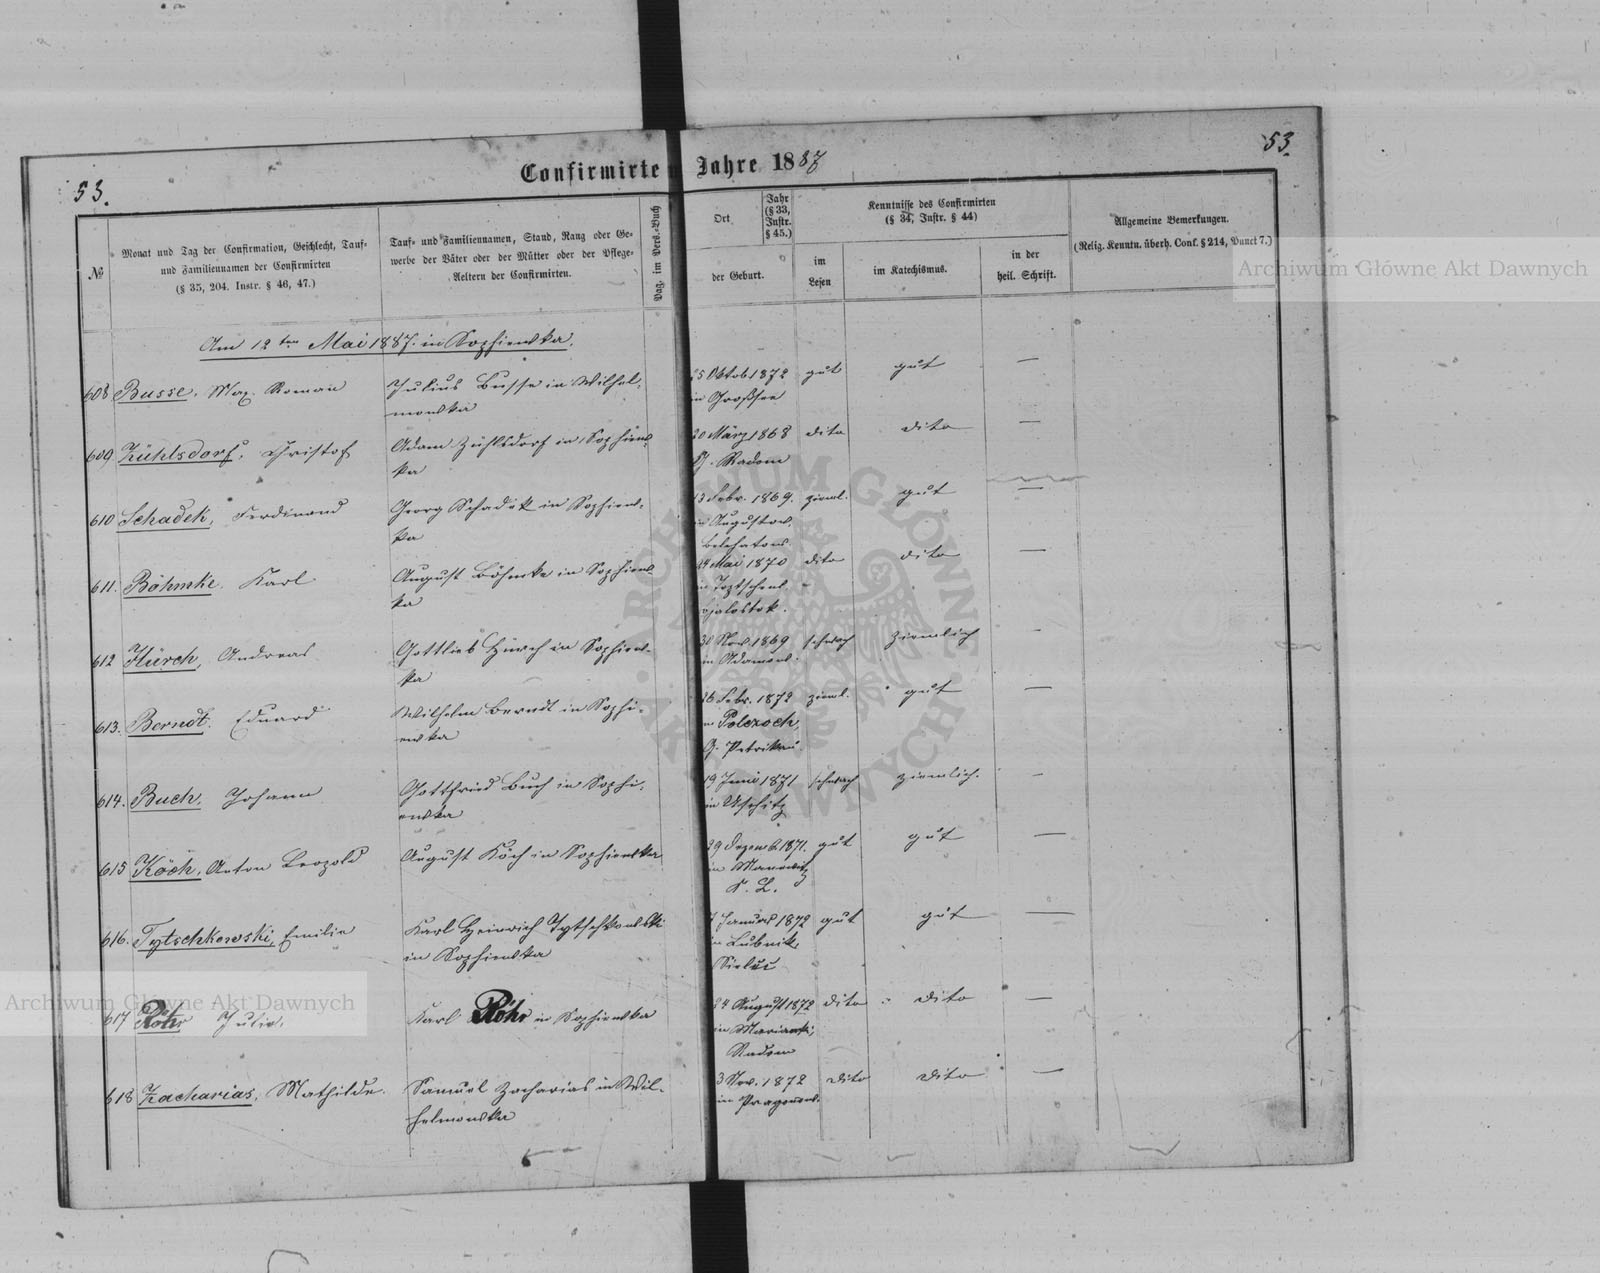 53.
53.
Confirmirte Jahre 1887
№
Monat und Tag der Confirmation, Geschlecht, Tauf-
und Familiennamen der Confirmirten
(§ 35, 204. Instr. § 46, 47.)
Tauf- und Familiennamen, Stand, Rang oder Ge-
werbe der Väter oder der Mütter oder der Pflege-
Aeltern der Confirmirten.
Pag. im Pers.-Buch
Ort
Jahr
(§ 33,
Instr.
§ 45.)
der Geburt.
Kenntnisse des Confirmirten
(§ 34, Instr. § 44)
im
Lesen
im Katechismus.
in der
heil. Schrift.
Allgemeine Bemerkungen.
(Relig. Kenntn. überh. Conf. § 214, Punct 7.)
Archiwum Główne Akt Dawnych
Am 12ten Mai 1887. in Sophiewka.
608 Busse, Max. Roman
Julius Busse in Wilhel-
mowka
25 Oktob. 1872 gut gut —
in Großsee
609 Zühlsdorf, Christof
Adam Zühlsdorf in Sophiew-
ka
20 März 1868 dito dito —
G. Radom
610 Schadek, Ferdinand
Georg Schadek in Sophiew-
ka
13 Febr. 1869. zieml. gut —
in Augustow.
Belchatow
611. Böhmke, Karl
August Böhmke in Sophiew-
ka
Mai 1870 dito dito —
612 Hürch, Andreas
Gottlieb Hürch in Sophiew-
ka
30 Nov. 1869 schwach ziemlich -
in Adamow.
613. Berndt. Eduard
Wilhelm Berndt in Sophi-
ewka
26 Febr. 1872 zieml. gut —
in Polezoch,
G. Petrikau.
614. Buch, Johann
Gottfried Buch in Sophi-
ewka
19 Juni 1871 schwach ziemlich. -
in Uschitz
615 Köch, Anton Leopold
August Köch in Sophiewka
29 Dezemb. 1871. gut gut —
in
K. L.
616. Tytschkowski, Emilie
Karl Heinrich Tytschkowski
in Sophiewka
7 Januar 1872 gut gut —
in Lubnik,
617 Röhr Julie,
Karl Röhr in Sophiewka
24 August 1872 dito dito —
in
Radom
618 Zacharias, Mathilde.
Samuel Zacharias in Wil-
helmowka
3 Nov. 1872 dito dito —
in
ARCHIWUM GŁÓWNE AKT DAWNYCH
Archiwum Główne Akt Dawnych